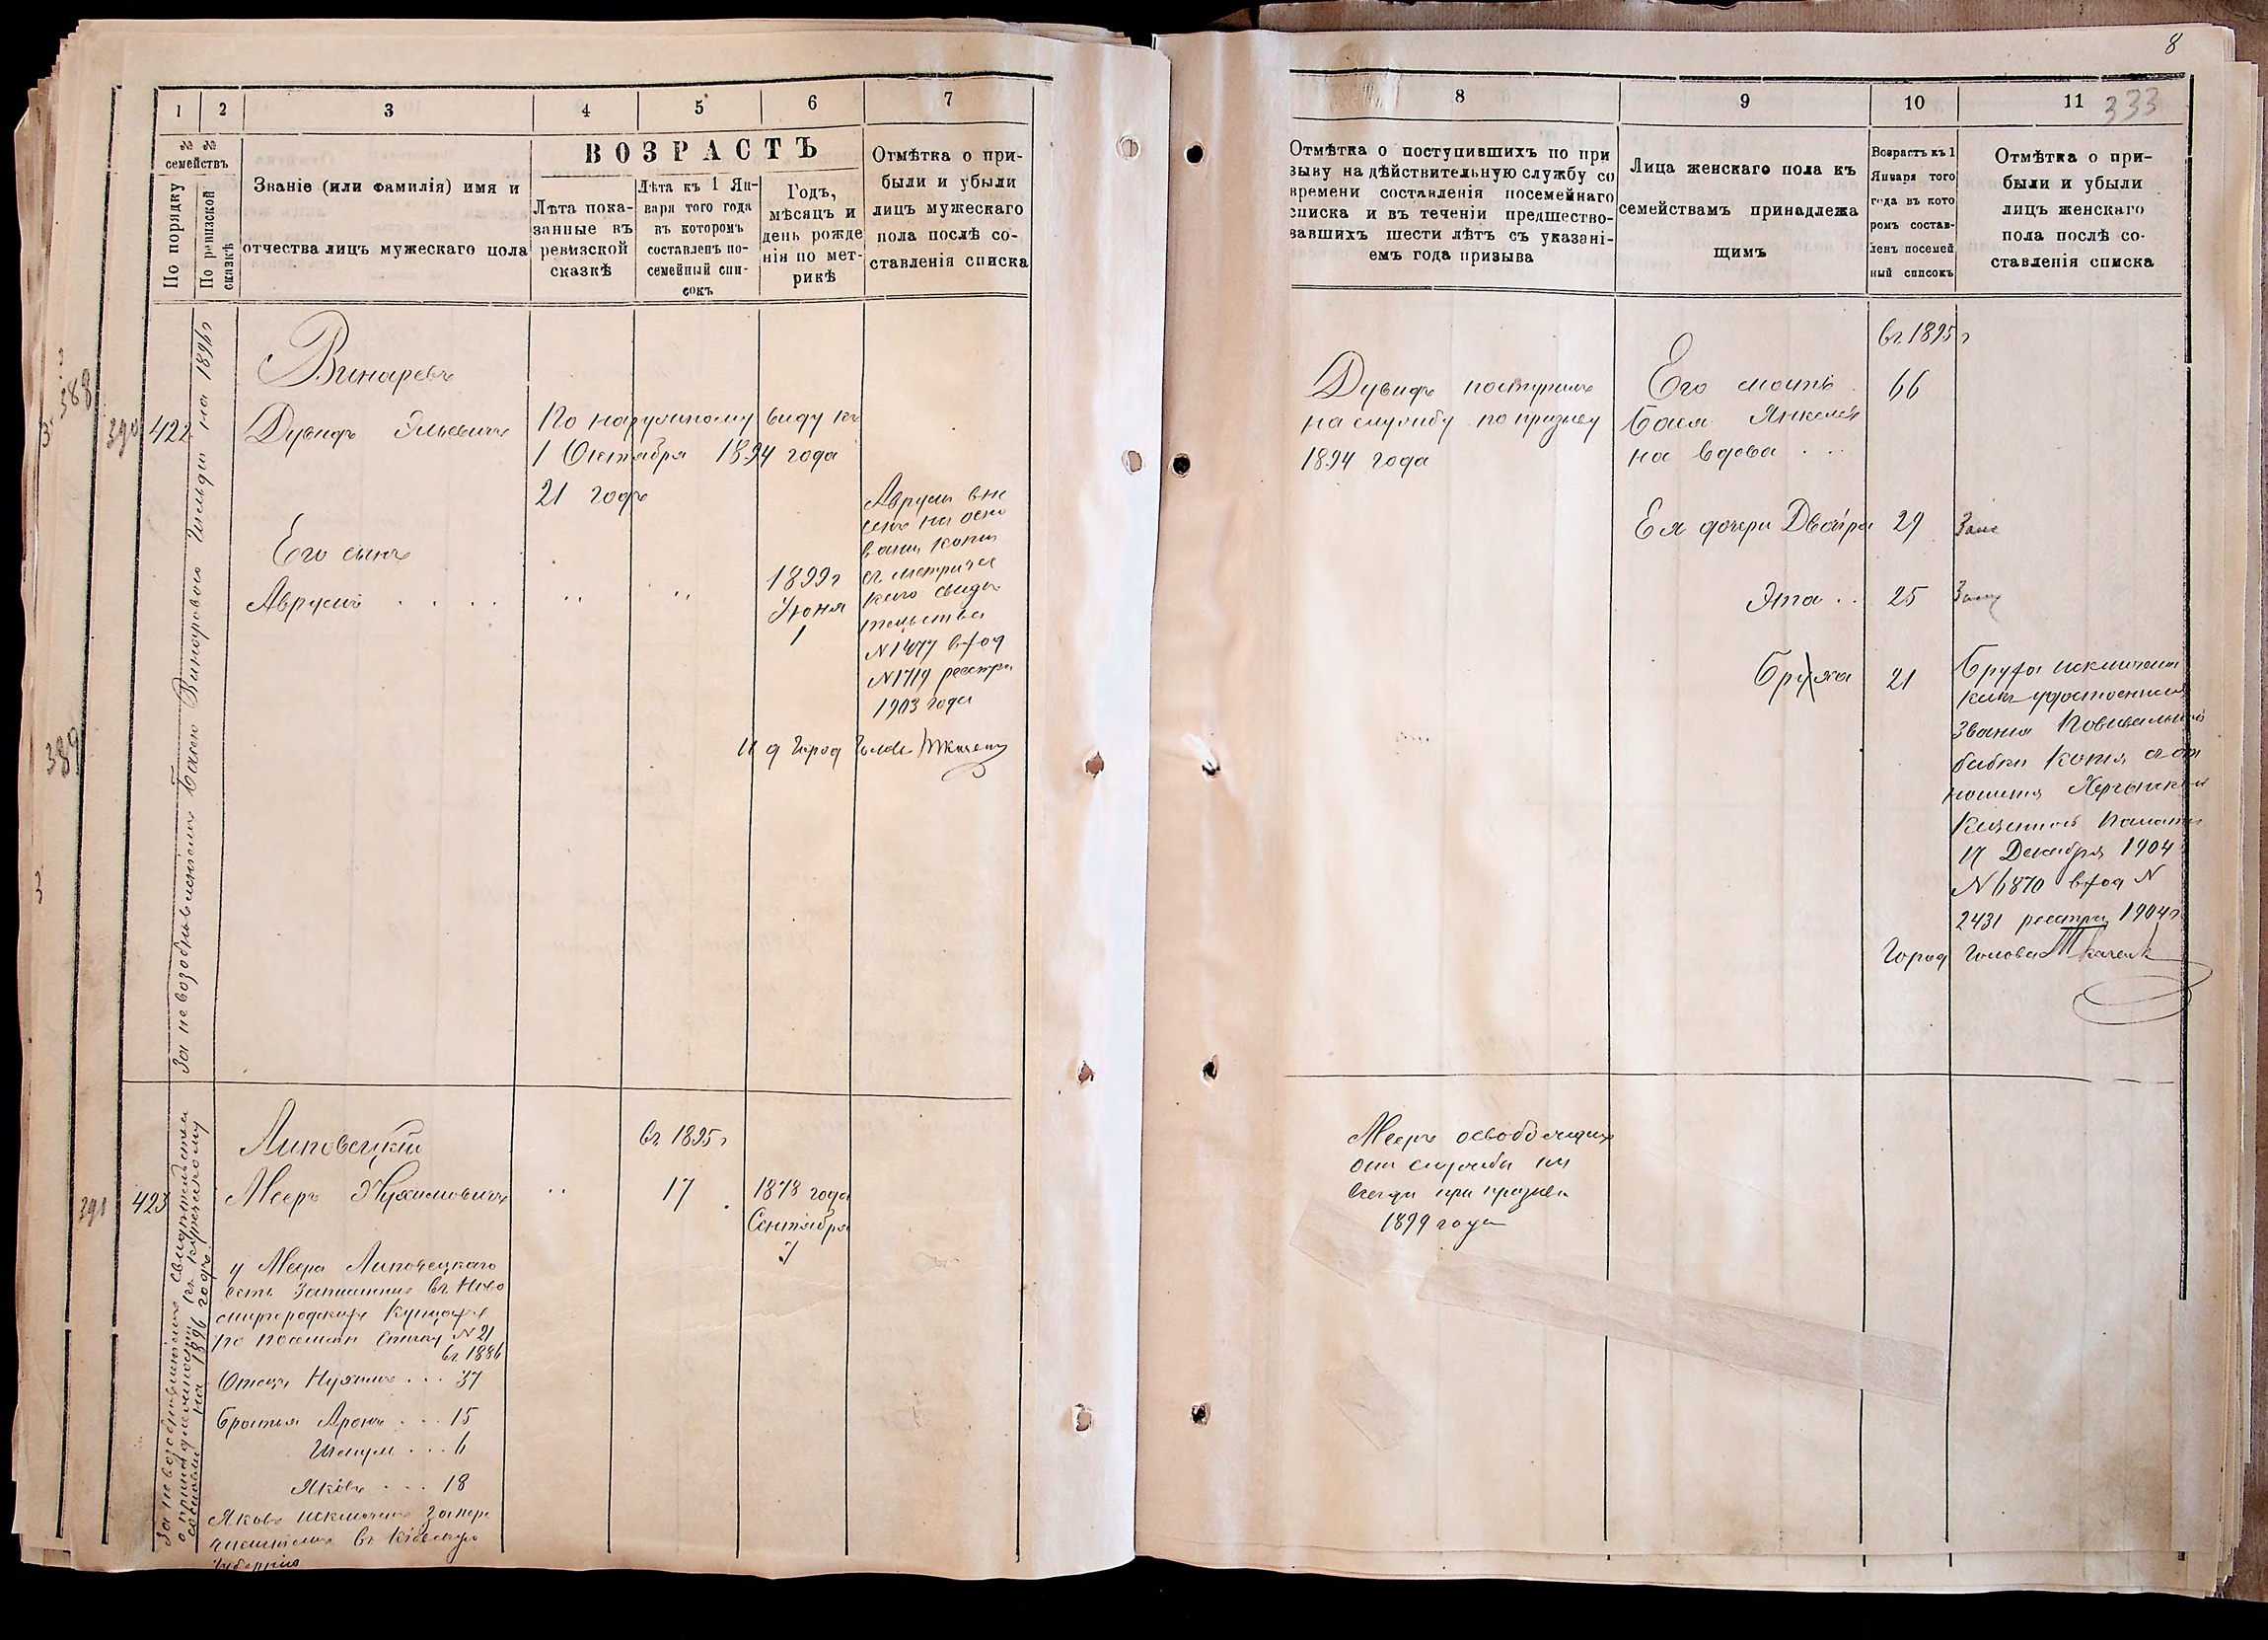 8
333
1 2 3 4 5 6 7
№ №
семействъ
По порядку
По ревизской
сказкѣ
Званіе (или фамилія) имя и
отчества лицъ мужескаго пола
ВОЗРАСТЪ
Лѣта пока-
занные въ
ревизской
сказкѣ
Лѣта къ 1 Ян-
варя того года
въ которомъ
составленъ по-
семейный спи-
сокъ
Годъ,
мѣсяцъ и
день рожде
нія по мет-
рикѣ
Отмѣтка о при-
были и убыли
лицъ мужескаго
пола послѣ со-
ставленія списка
388
389
За не возобновленіемъ Басею Винаровою Гильдіи на 1896 г
390 422
Винаревъ
Дувидъ Эльевичъ
По наружному виду къ
1 Октября 1894 года
21 годъ
Его сынъ
Аврумъ
1899 г
Іюня
1
Аврумъ вне
сенъ на осно
ваніи копіи
съ метричес
каго свидѣ
тельства
N 1477 вход
N 1719 реестра
1903 года
И д Город Головы Ткаченко
За невозобновленіемъ свидѣтельства
о принадлежности къ купеческому
сословію на 1896 годъ.
391 423
Липовецкій
въ 1895 г
Мееръ Нухимовичъ
17
1878 года
Сентября
7
у Меера Липовецкаго
есть записанные въ Ново
миргородскихъ купцахъ
по посемейн списку N 21
въ 1886
Отецъ Нухимъ . . . 37
Братья Аронъ . . . 15
Шмулъ . . . 6
Яковъ . . . 18
Яковъ исключенъ за пере
численіемъ въ Кіевскую
Губернію
8 9 10 11
Отмѣтка о поступившихъ по при
зыву на дѣйствительную службу со
времени составленія посемейнаго
списка и въ теченіи предшество-
вавшихъ шести лѣтъ съ указані-
емъ года призыва
Лица женскаго пола къ
семействамъ принадлежа
щимъ
Возрастъ къ 1
Января того
года въ кото
ромъ состав-
ленъ посемей
ный списокъ
Отмѣтка о при-
были и убыли
лицъ женскаго
пола послѣ со-
ставленія списка
въ 1895 г
Дувидъ поступилъ
на службу по призыву
1894 года
Его мать
Бася Янкелев
на вдова . . .
66
Ея дочери Двойра 29 Зам
Эта . . 25 Зам
Бруха 21
Бруха исключена
какъ удостоенная
званія Повивальной
бабки Копія съ от
ношенія Херсонской
Казенной Палаты
17 Декабря 1904
N 6870 вход N
2431 реестра 1904 г
Город Голова Ткаченко
Мееръ освобожденъ
отъ службы на
всегда при призывѣ
1899 года